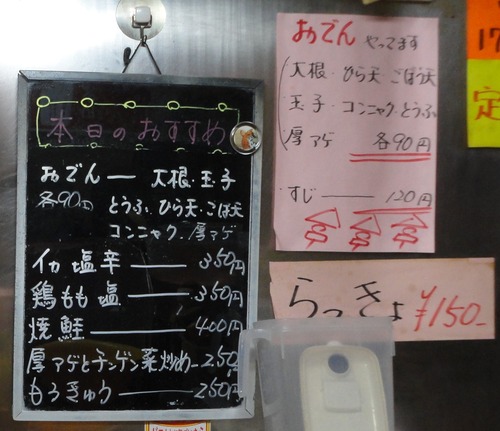 本日のおすすめ
おでん ― 大根・玉子
各90円 とうふ・ひら天・ごぼ天
コンニャク・厚アゲ
イカ塩辛 ― 350円
鶏もも塩 ― 350円
焼鮭 ― 400円
厚アゲとチンゲン菜炒め ― 250
もろきゅう ― 250円
おでん やってます
大根・ひら天 ごぼう天
玉子・コンニャク・とうふ
厚アゲ 各90円
すじ ― 120円
らっきょ ¥150-
17
定